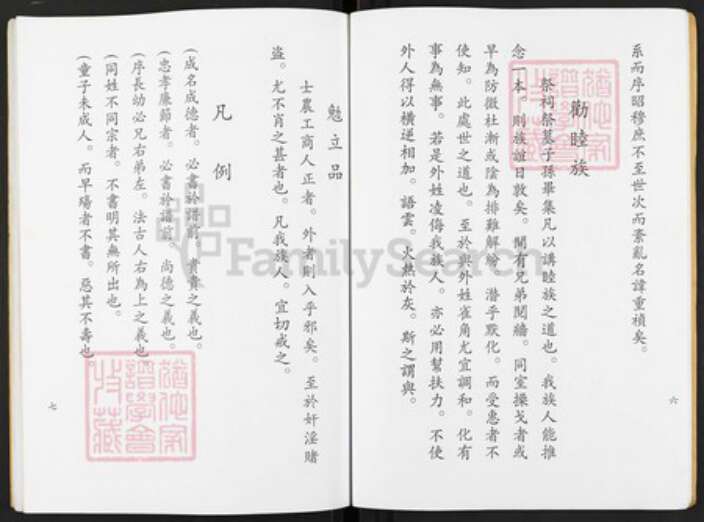 系而序昭穆庶不至世次而紊亂名諱重禎矣。
勸睦族
祭祠祭墓子孫畢集凡以講睦族之道也。我族人能推
念一本。則族誼日敦矣。間有兄弟鬩牆。同室操戈者或
早為防微杜漸或陰為排難解紛。潛乎默化。而受惠者不
使知。此處世之道也。至於與外姓雀角尤宜調和。化有
事為無事。若是外姓凌侮我族人。亦必用幫扶力。不使
外人得以橫逆相加。語雲。火熱於灰。斯之謂與。
六
勉立品
士農工商人正者。外者則入乎邪矣。至於奸淫賭
盜。尤不肖之甚者也。凡我族人。宜切戒之。
凡例
(成名成德者。必書於譜前。貴貴之義也。
(忠孝廉節者。必書於譜前。尚德之義也。
(序長幼必兄右弟左。法古人右為上之義也
(同姓不同宗者。不書明其無所出也。
(童子未成人。而早殤者不書。惡其不壽也。
七
FamilySearch